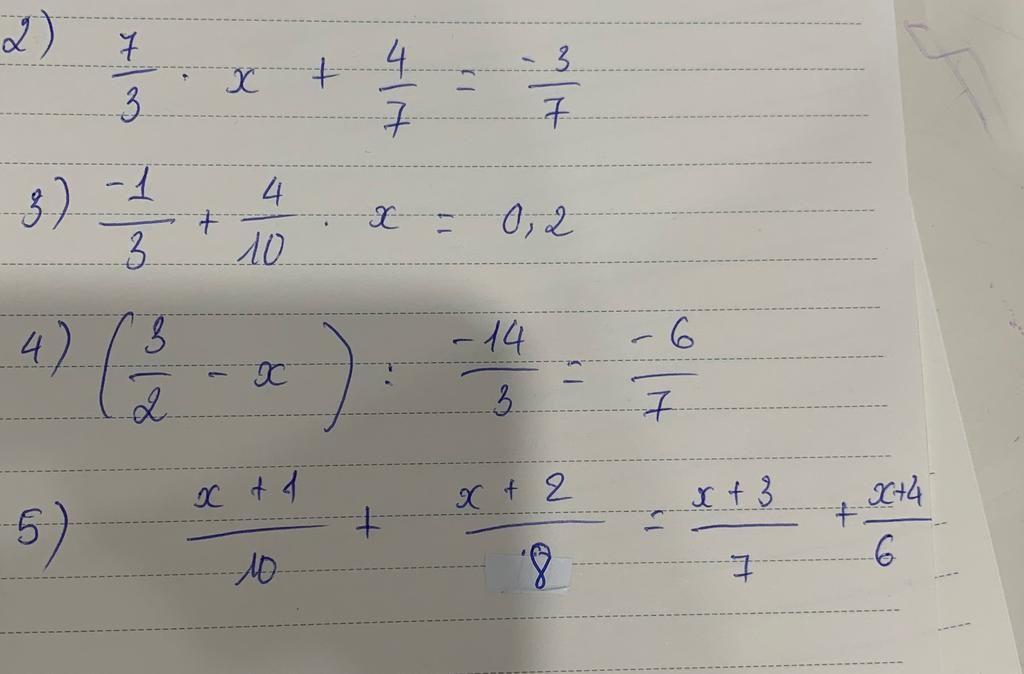 2) 7/3 · x + 4/7 = -3/7
3) -1/3 + 4/10 · x = 0,2
4) (3/2 - x) : -14/3 = -6/7
5) x + 1/10 + x + 2/8 = x + 3/7 + x+4/6